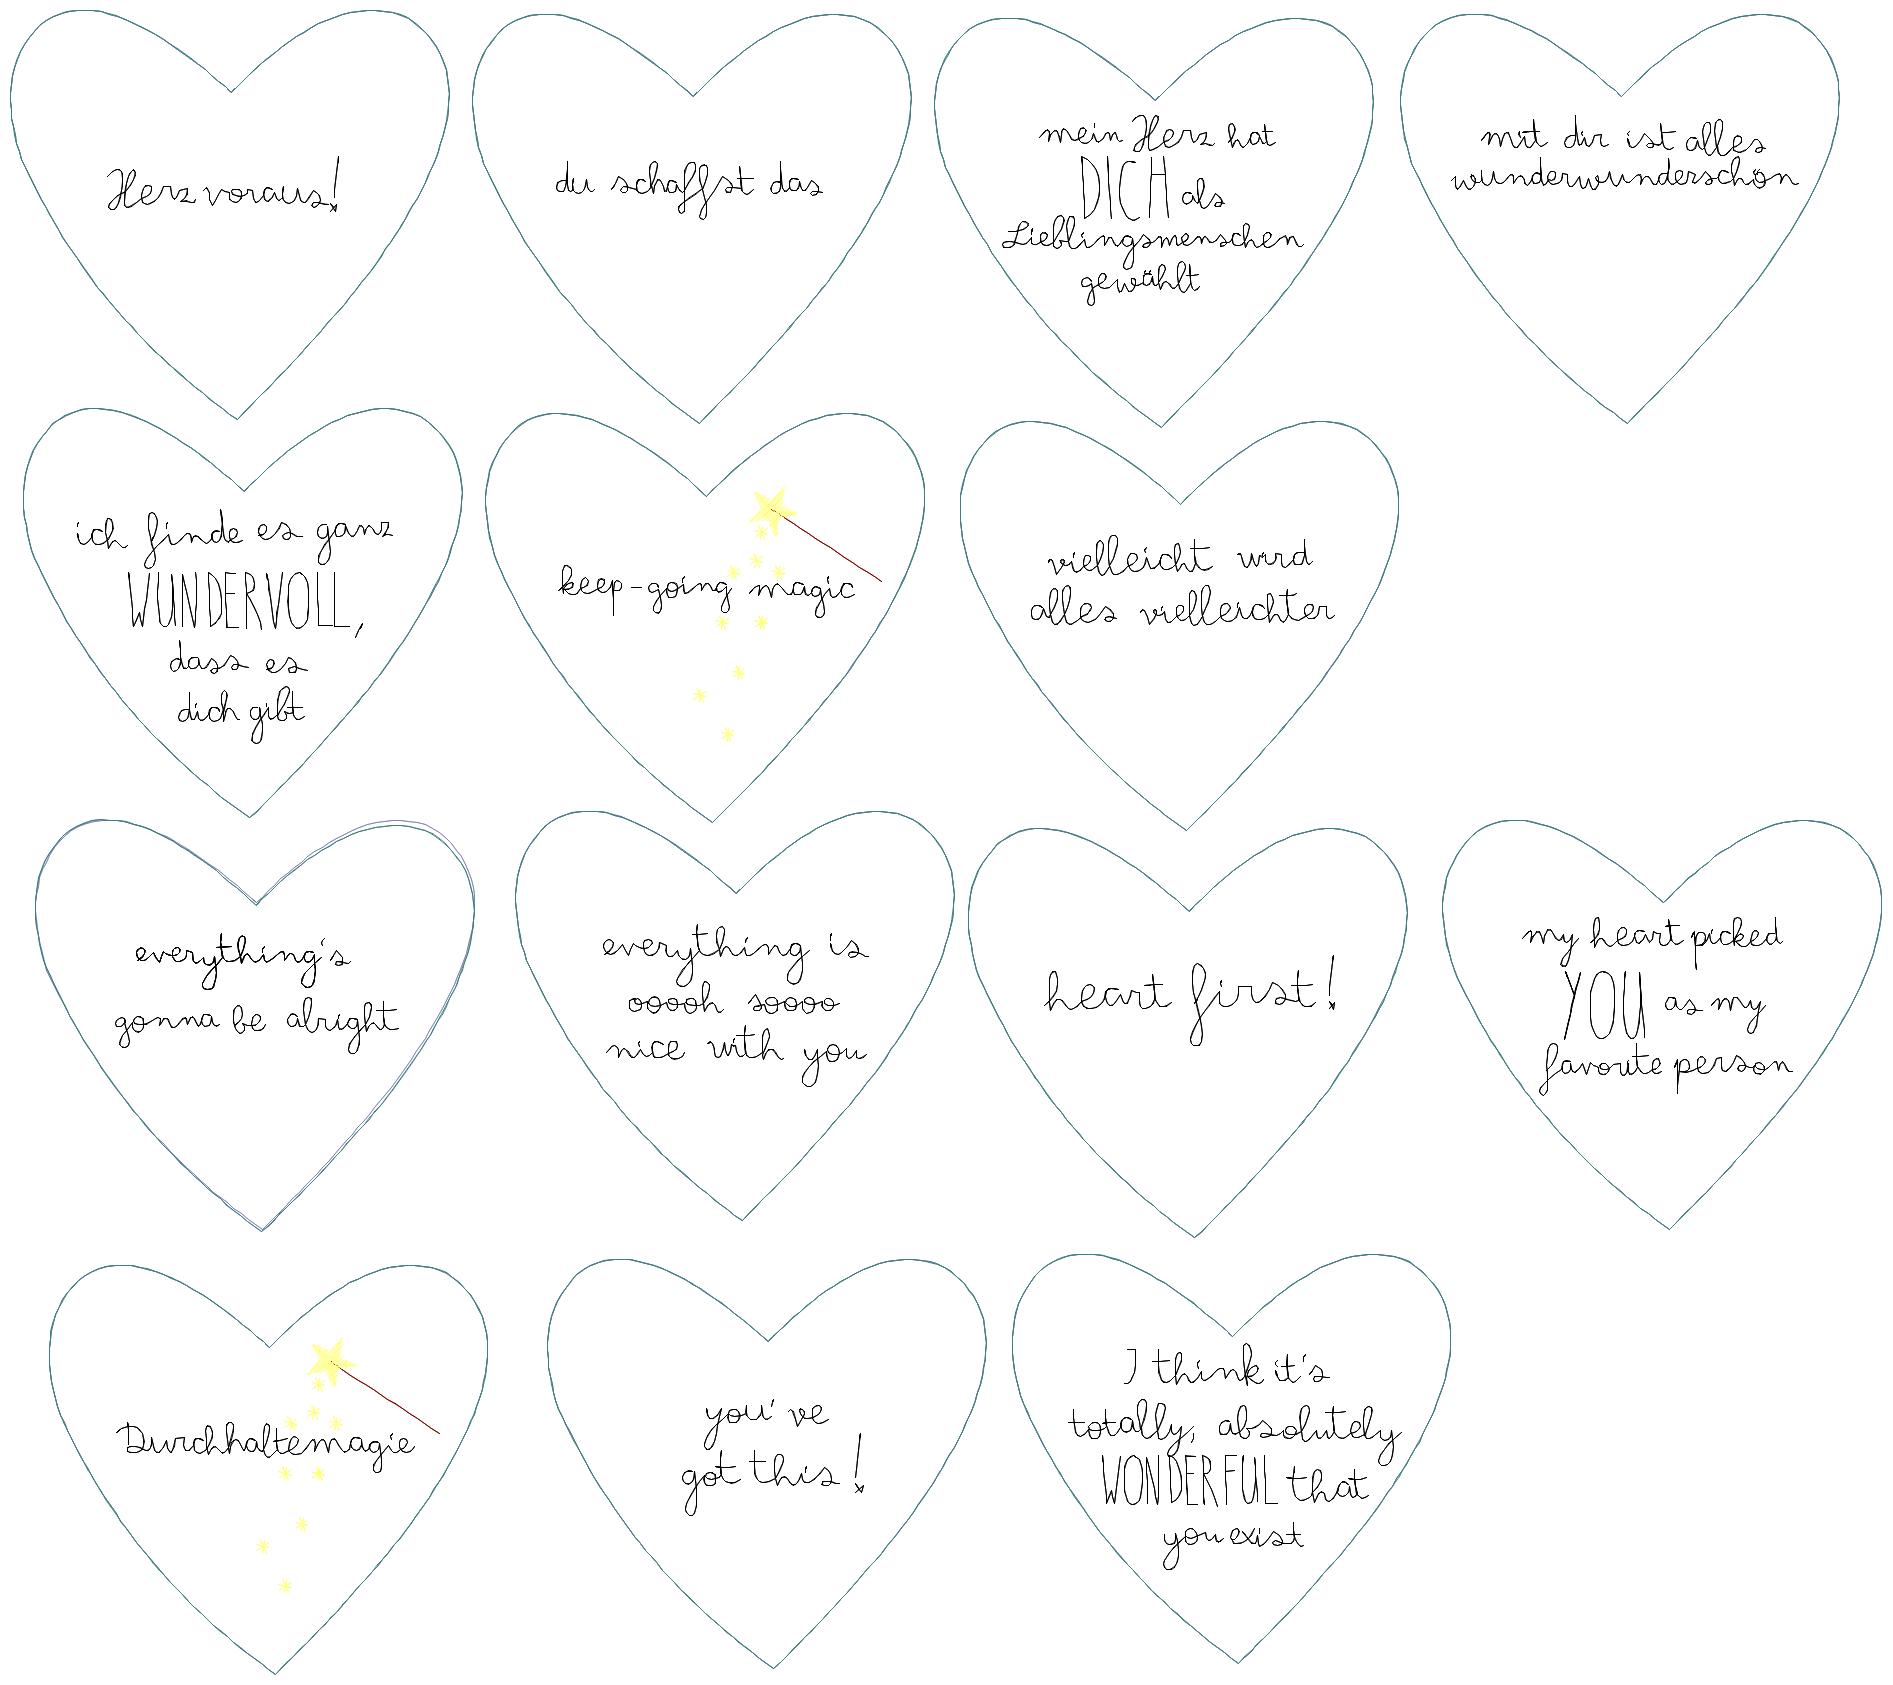 Herz voraus!
du schaffst das
mein Herz hat
DICH als
Lieblingsmenschen
gewählt
mit dir ist alles
wunderwunderschön
ich finde es ganz
WUNDERVOLL,
dass es
dich gibt
keep-going magic
vielleicht wird
alles vielleichter
everything's
gonna be alright
everything is
ooooh soooo
nice with you
heart first!
my heart picked
YOU as my
favorite person
Durchhaltemagie
you've
got this!
I think it's
totally, absolutely
WONDERFUL that
you exist